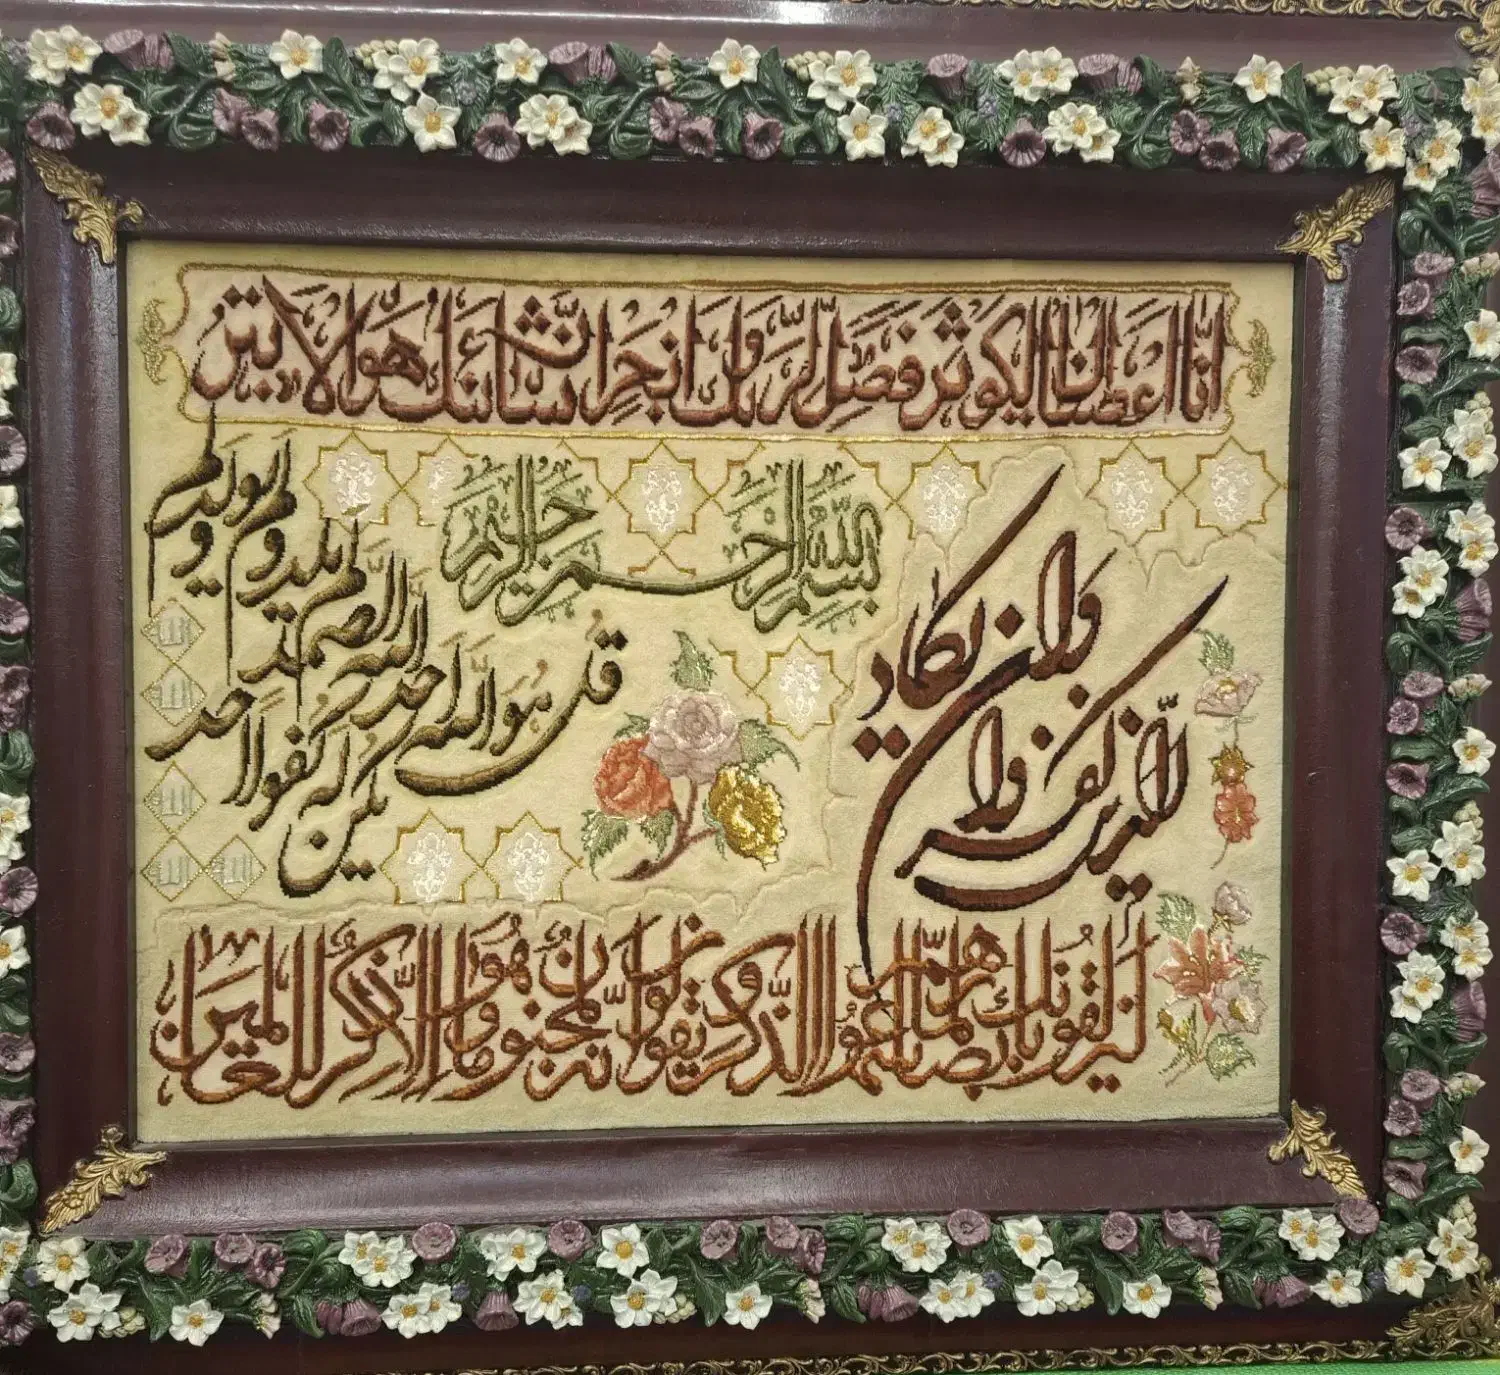 انا اعطیناك الكوثر فصل لربك و انحر ان شانئك هو الابتر
بسم الله الرحمن الرحیم
قل هو الله احد
الله الصمد
لم یلد و لم یولد
و لم یكن له كفوا احد
و ان یكاد الذین كفروا
لیزلقونك بابصارهم لما سمعوا الذكر و یقولون انه لمجنون و ما هو الا ذكر للعالمین
الله
الله
الله
الله
الله